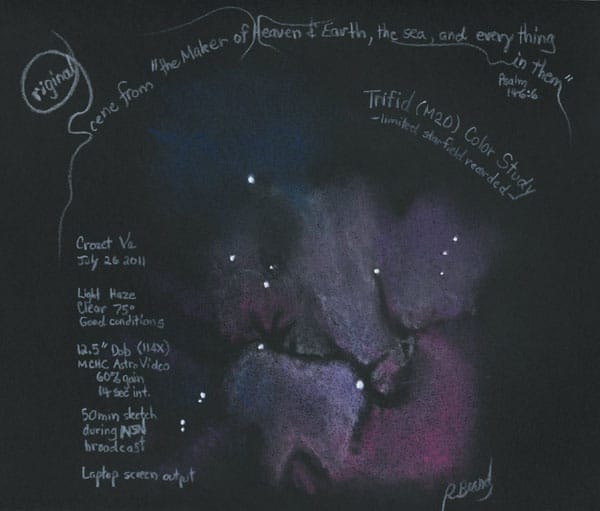 Original
Scene from "the Maker of Heaven & Earth, the sea, and every thing
in them"
Psalm
146:6
Trifid (M20) Color Study
-limited starfield recorded-
Crozet Va
July 26 2011
Light Haze
Clear 75°
Good conditions
12.5" Dob (114X)
MCHC Astro Video
60% gain
14 sec int.
50min sketch
during NSN
broadcast
Laptop screen output